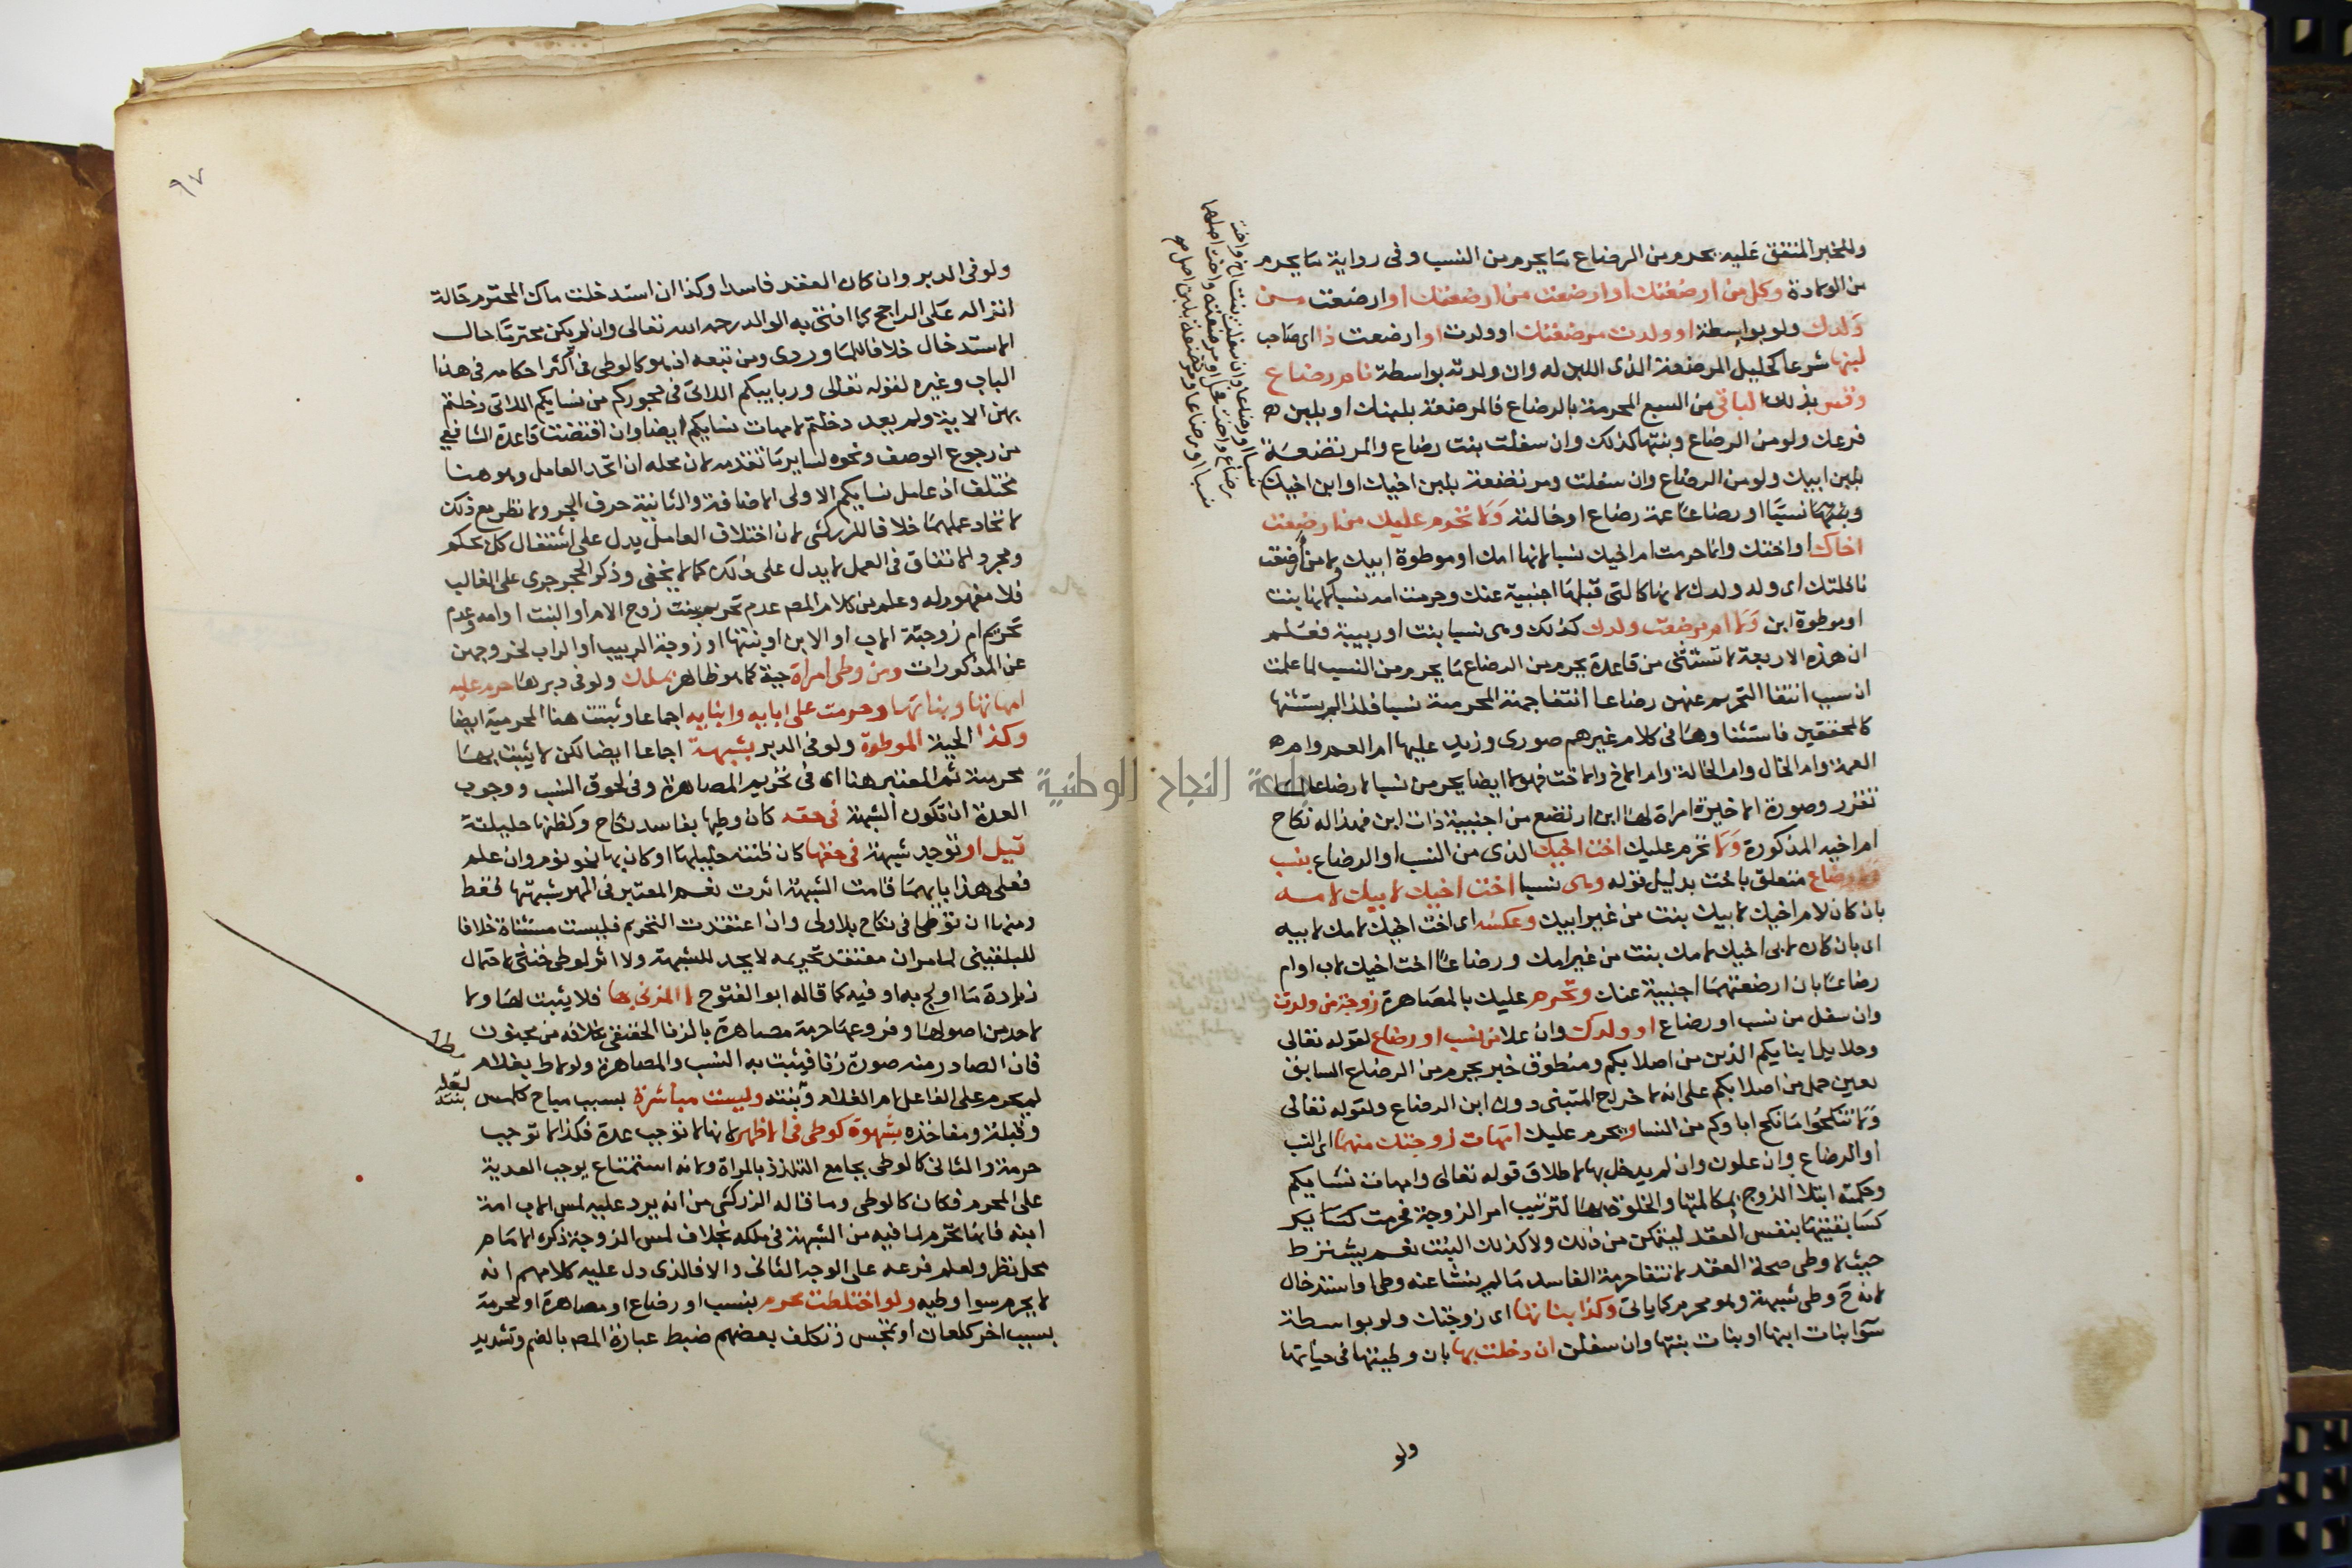 وللخبر المتفق عليه يحرم من الرضاع ما يحرم من النسب وفى رواية ما يحرم
من الولادة وكل من ارضعتك او ارضعت من ارضعتك او ارضعت من
ولدك ولو بواسطة او ولدت مرضعتك او ولدت او ارضعت ذا اى صاحب
لبنها شرعا كحليل المرضعة الذى اللبن له وان ولدته بواسطة فام رضاع
وقس بذلك الباقى من السبع المحرمة بالرضاع فالمرضعة بلبنك او بلبن
فرعك ولو من الرضاع وبنتها كذلك وان سفلت بنت رضاع والمرتضعة
بلبن ابيك ولو من الرضاع وان سفلت ومرتضعة بلبن اخيك او ابن اخيك
وبنتها نسبا او رضاعا عمة رضاع او خالته ولا تحرم عليك من ارضعت
اخاك او اختك وانما حرمت ام اخيك نسبا لانها امك او موطوة ابيك ولا من ارضعت
نافلتك اى ولد ولدك لانها كالتى قبلها اجنبية عنك وحرمت امه نسبا لانها بنت
او موطوة ابن ولا ام مرضعت ولدك كذلك وهى نسبا بنت او ربيبة فعلم
ان هذه الاربعة لا تستثنى من قاعدة يحرم من الرضاع ما يحرم من النسب لما علمت
ان سبب انتفا التحريم عنهن رضاعا انتفا جهة المحرمية نسبا فلذا لم يستثنها
كالمحققين فاستثناوها فى كلام غيرهم صورى وزيد عليها ام العم وام
العمة وام الخال وام الخالة وام الاخ والاخت فهولا ايضا يحرمن نسبا لا رضاعا لما
تقرر وصورة الاخيرة امراة لها ابن ارتضع من اجنبية ذات ابن فهذا له نكاح
ام اخيه المذكورة ولا تحرم عليك اخت اخيك الذى من النسب او الرضاع بنسب
ولا رضاع متعلق باخت بدليل قوله وهى نسبا اخت اخيك لابيك لامه
بان كان لام اخيك لابيك بنت من غير ابيك وعكسه اى اخت اخيك لامك لابيه
اى بان كان لابى اخيك لامك بنت من غير امك ورضاعا اخت اخيك لاب او ام
رضاعا بان ارضعتهما اجنبية عنك وتحرم عليك بالمصاهرة زوجة من ولدت
وان سفل من نسب او رضاع او ولدك وان علا من نسب او رضاع لقوله تعالى
وحلايل ابنايكم الذين من اصلابكم ومنطوق خبر يحرم من الرضاع السابق
يعين حمل من اصلابكم على انه لاخراج المتبنى دون ابن الرضاع ولقوله تعالى
ولا تنكحوا ما نكح اباوكم من النسا ويحرم عليك امهات زوجتك منهما اى النسب
او الرضاع وان علون وان لم يدخل بها لاطلاق قوله تعالى وامهات نسايكم
وحكمته ابتلا الزوج بمكالمتها والخلوة بها لترتيب امر الزوجة فحرمت كساير
كسابقيتها بنفس العقد ليتمكن من ذلك ولا كذلك البنت نعم يشترط
حيث لا وطى صحة العقد لانتفا حرمة الفاسد ما لم ينشا عنه وطى او استدخال
لانه ح وطى شبهة وهو محرم كما ياتى وكذا بناتها اى زوجتك ولو بواسطة
سوا بنات ابنها او بنات بنتها وان سفلن ان دخلت بها بان وطيتها فى حياتها
ولو
٩٧
ولو فى الدبر وان كان العقد فاسدا وكذا ان استدخلت ماك المحترم حالة
انزاله على الراجح كما افتى به الوالد رحمه الله تعالى وان لم يكن محترما حال
الاستدخال خلافا للماوردى ومن تبعه اذ هو كالوطى فى اكثر احكامه فى هذا
الباب وغيره لقوله تعالى وربايبكم اللاتى فى حجوركم من نسايكم اللاتى دخلتم
بهن الاية ولم يعد دخلتم لامهات نسايكم ايضا وان اقتضت قاعدة الشافعى
من رجوع الوصف ونحوه لساير ما تقدمه لان محله ان اتحد العامل وهو هنا
مختلف اذ عامل نسايكم الاولى الاضافة والثانية حرف الجر ولا نظر مع ذلك
لاتحاد عملهما خلافا للزركشى لان اختلاف العامل يدل على استقلال كل بحكم
ومجرد الاتفاق فى العمل لا يدل على ذلك كما لا يخفى وذكر الحجر جرى على الغالب
فلا مفهوم له وعلم من كلام المص عدم تحريم بنت زوج الام او البنت او امه وعدم
تحريم ام زوجة الاب او الابن او بنتها او زوجة الربيب او الراب لخروجهن
عن المذكورات ومن وطى امراة حية كما هو ظاهر بملك ولو فى دبرها حرم عليه
امهاتها وبناتها وحرمت على ابايه وابنايه اجماعا وثبتت هنا المحرمية ايضا
وكذا الحية الموطوة ولو فى الدبر بشبهة اجماعا ايضا لكن لا يثبت بها
محرمية ثم المعتبر هنا اى فى تحريم المصاهرة وفى لحوق النسب ووجوب
العدة ان تكون الشبهة فى حقه كان وطيها بفاسد نكاح وكظنها حليلته
قيل او توجد شبهة فى حقها كان ظنته حليلها او كان بها نحو نوم وان علم
فعلى هذا بايهما قامت الشبهة اثرت نعم المعتبر فى المهر شبهتها فقط
ومنها ان توطى فى نكاح بلا ولى وان اعتقدت التحريم فليست مستثناة خلافا
للبلقينى لما مر ان معتقد تحريمه لا يحد للشبهة ولا اثر لوطى خنثى لاحتمال
زيادة ما اولج به او فيه كما قاله ابو الفتوح لا المزنى بها فلا يثبت لها ولا
لاحد من اصولها وفروعها حرمة مصاهرة بالزنا الحقيقى بخلافه من مجنون
فان الصادر منه صورة زنا فيثبت به النسب والمصاهرة ولو لاط بغلام
لم يحرم على الفاعل ام الغلام وبنته وليست مباشرة بسبب مباح كلمس
وقبلة ومفاخذة بشهوة كوطى فى الاظهر لانها لا توجب عدة فكذا لا توجب
حرمة والثانى كالوطى بجامع التلذذ بالمراة ولانه استمتاع يوجب الفدية
على المحرم فكان كالوطى وما قاله الزركشى من انه يرد عليه لمس الاب امة
ابنه فانها تحرم لما فيه من الشبهة فى ملكه بخلاف لمس الزوجة ذكره الامام
محل نظر ولعلم فرعه على الوجه الثانى والا فالذى دل عليه كلامهم انه
لا يحرم سوا وطيه ولو اختلطت محرم بنسب او رضاع او مصاهرة او محرمة
بسبب اخر كلعان او تمجس وتكلف بعضهم ضبط عبارة المص بالضم وتشديد
لعله
بنته